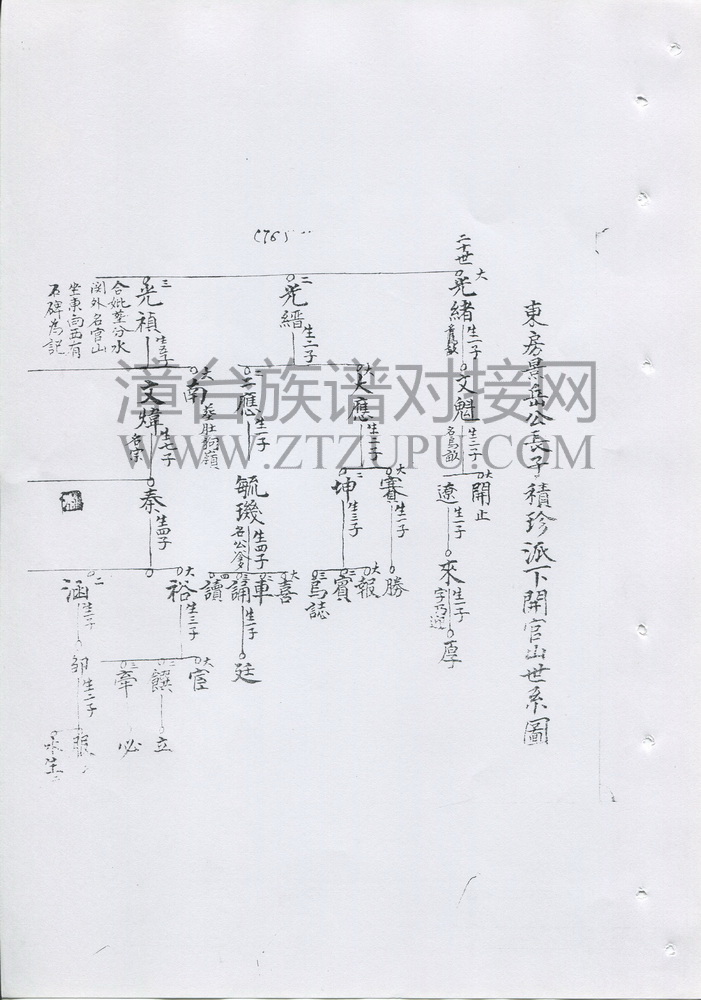 (76)
東房景岳公長子積珍派下開官山世系圖
二十世
大
光緒
生一子
文魁
生二子
大
開止
遼
生一子
來
生一子
厚
二
光縉
生二子
大
大應
生二子
大
賽
生一子
勝
二
坤
生三子
大
報
二
賓
三
馬誌
二
二應
生一子
毓璣
生四子
大
喜
二
車
三
誦
生一子
廷
四
讀
三
光禎
生五子
合妣墓汾水
関外名官山
坐東向西有
石碑為記
大
南
葬肚狗嶺
二
文煒
生七子
名宗
秦
生四子
大
裕
生三子
大
宦
二
饌
立
三
牽
必
二
涵
生一子
邹
生二子
漳台族谱对接网
WWW.ZTZUPU.COM